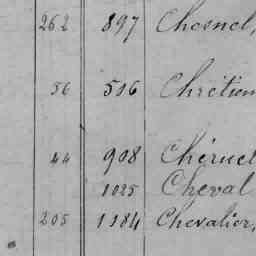 262 897 Chesnel,
56 506 Chrétien
44 908 Chéruel
1025 Cheval
205 1184 Chevalier,